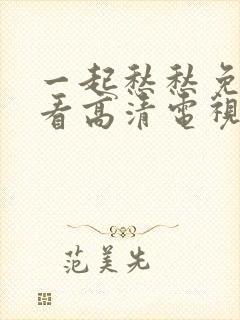 一起愁愁免
看高清電視
范美先